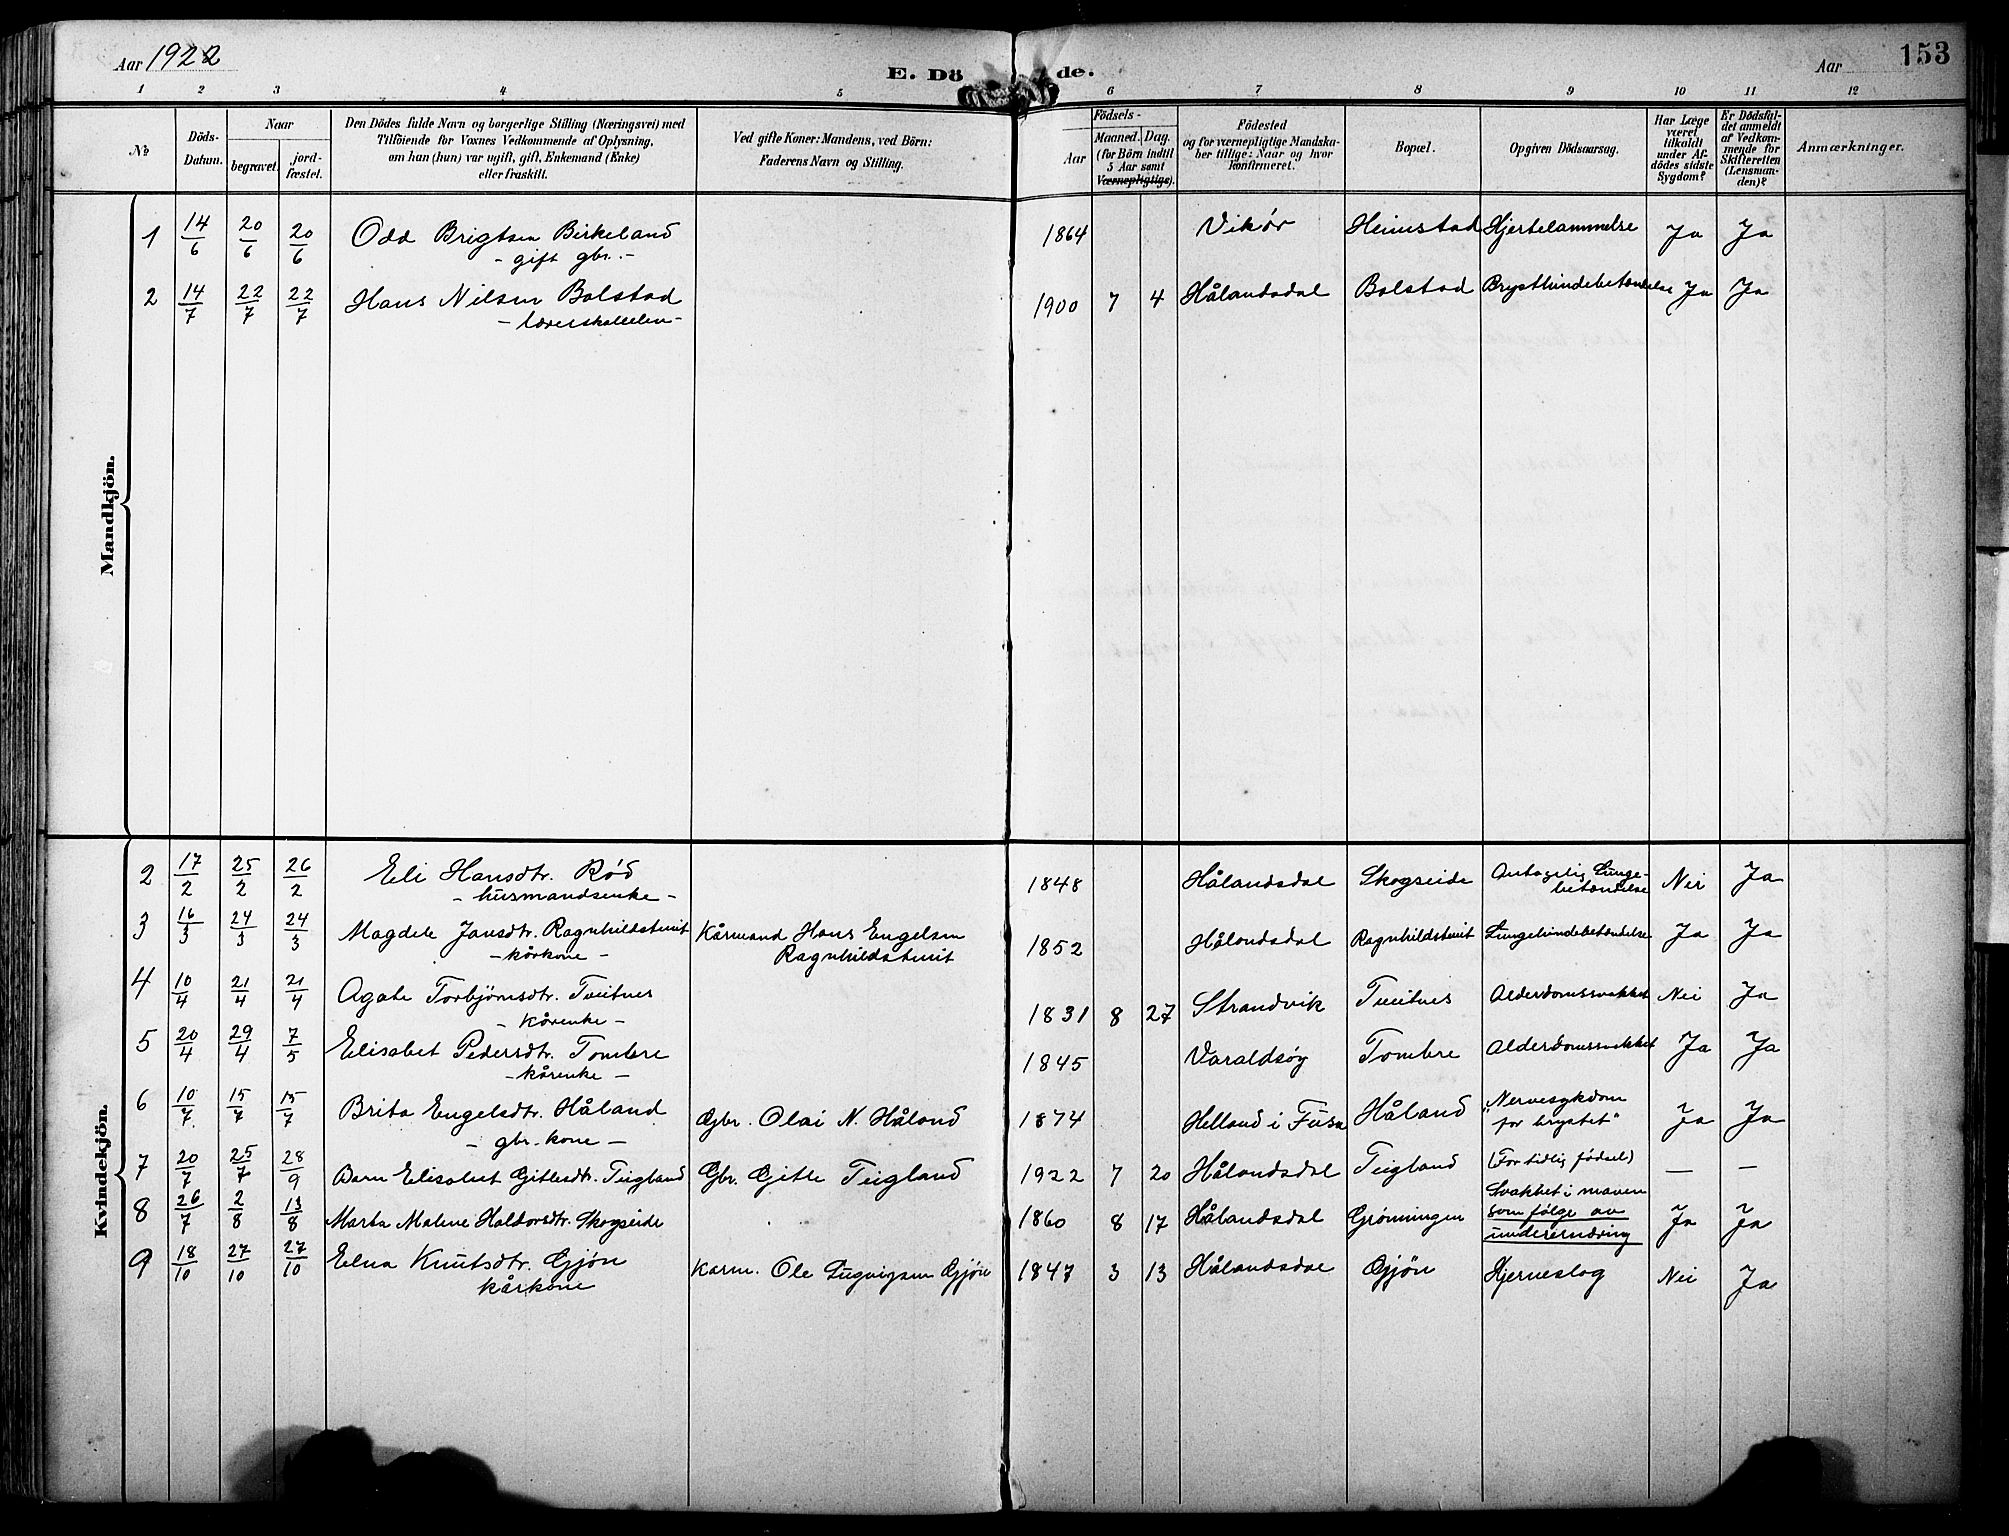 Aar 1922
E. Dö de.
Aar
153
1 2 3 4 5 6 7 8 9 10 11 12
No
Döds-Datum.
Naar
begravet.
jord-fæstet.
Den Dödes fulde Navn og borgerlige Stilling (Næringsvei) med
Tilföiende for Voxnes Vedkommende af Oplysning,
om han (hun) var ugift, gift, Enkemand (Enke)
eller fraskilt.
Ved gifte Koner: Mandens, ved Börn:
Faderens Navn og Stilling.
Födsels-
Aar
Maaned.
Dag.
(for Börn indtil
5 Aar samt
Værnepligtige).
Födested
og for værnepligtige Mandska-
ber tillige: Naar og hvor
konfirmeret.
Bopæl.
Opgiven Dödsaarsag.
Har Læge
været
tilkaldt
under Af-
dödes sidste
Sygdom?
Er Dödsfal-
det anmeldt
af Vedkom-
mende for
Skifteretten
(Lensman-
den)?
Anmærkninger.
Mandkjön.
1 14/6 20/6 20/6 Odd Brigtsen Birkeland 1864 Vikør Heimstad Hjertelammelse Ja Ja
- gift gbr. -
2 14/7 22/7 22/7 Hans Nilsen Bolstad 1900 7 4 Hålandsdal Bolstad Brysthindebetændelse Ja Ja
Kvindekjön.
2 17/2 25/2 26/2 Eli Hansdtr. Rød 1848 Hålandsdal Skogseide Antagelig Lunge- Nei Ja
- husmandsenke - betændelse
3 16/3 24/3 24/3 Magdele Jansdtr. Ragnhildstveit Kårmand Hans Engelsen 1852 Hålandsdal Ragnhildstveit Lungehindebetændelse Ja Ja
- kårkone - Ragnhildstveit
4 10/4 21/4 21/4 Agate Torbjørnsdtr. Tveitnes 1831 8 27 Strandvik Tveitnes Alderdomssvakhet Nei Ja
- Kårenke -
5 20/4 29/4 7/5 Elisabet Pedersdtr. Tombre 1845 Varaldsøy Tombre Alderdomssvakhet Ja Ja
- kårenke -
6 10/7 15/7 15/7 Brita Engelsdtr. Håland Gbr. Olai N. Håland 1874 Helland i Fusa Håland "Nervesykdom Ja Ja
- gbr. kone - for brystet"
7 20/7 25/7 28/9 Barn Elisabet Gitlesdtr. Teigland Gbr. Gitle Teigland 1922 7 20 Hålandsdal Teigland (For tidlig fødsel) — —
8 26/7 2/8 13/8 Marta Malene Haldorsdtr. Skogseide 1860 8 17 Hålandsdal Grønningen Svakhet i maven Ja Ja
som følge av
underernæring
9 18/10 27/10 27/10 Elna Knutsdtr. Gjøn Karm. Ole Gjøn 1847 3 13 Hålandsdal Gjøn Hjerneslag Nei Ja
kårkone